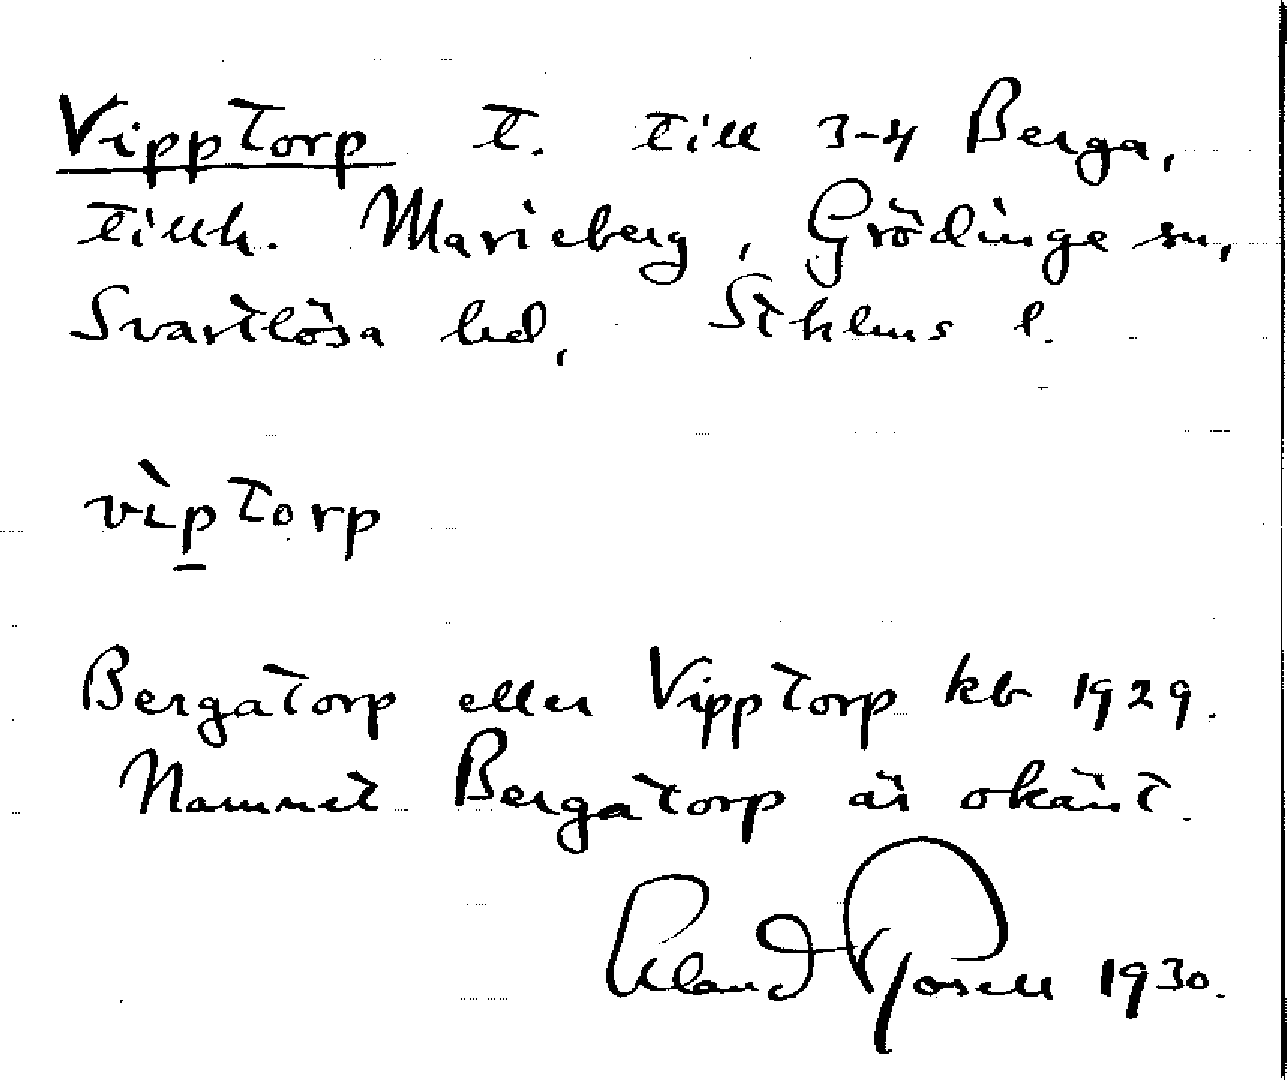 Vipptorp t. till 3-4 Berga,
tillh. Marieberg, Grödinge sn,
Svartlösa hd, Sthlms l.
vìptorp
Bergatorp eller Vipptorp kb 1929.
Namnet Bergatorp är okänt.
1930.